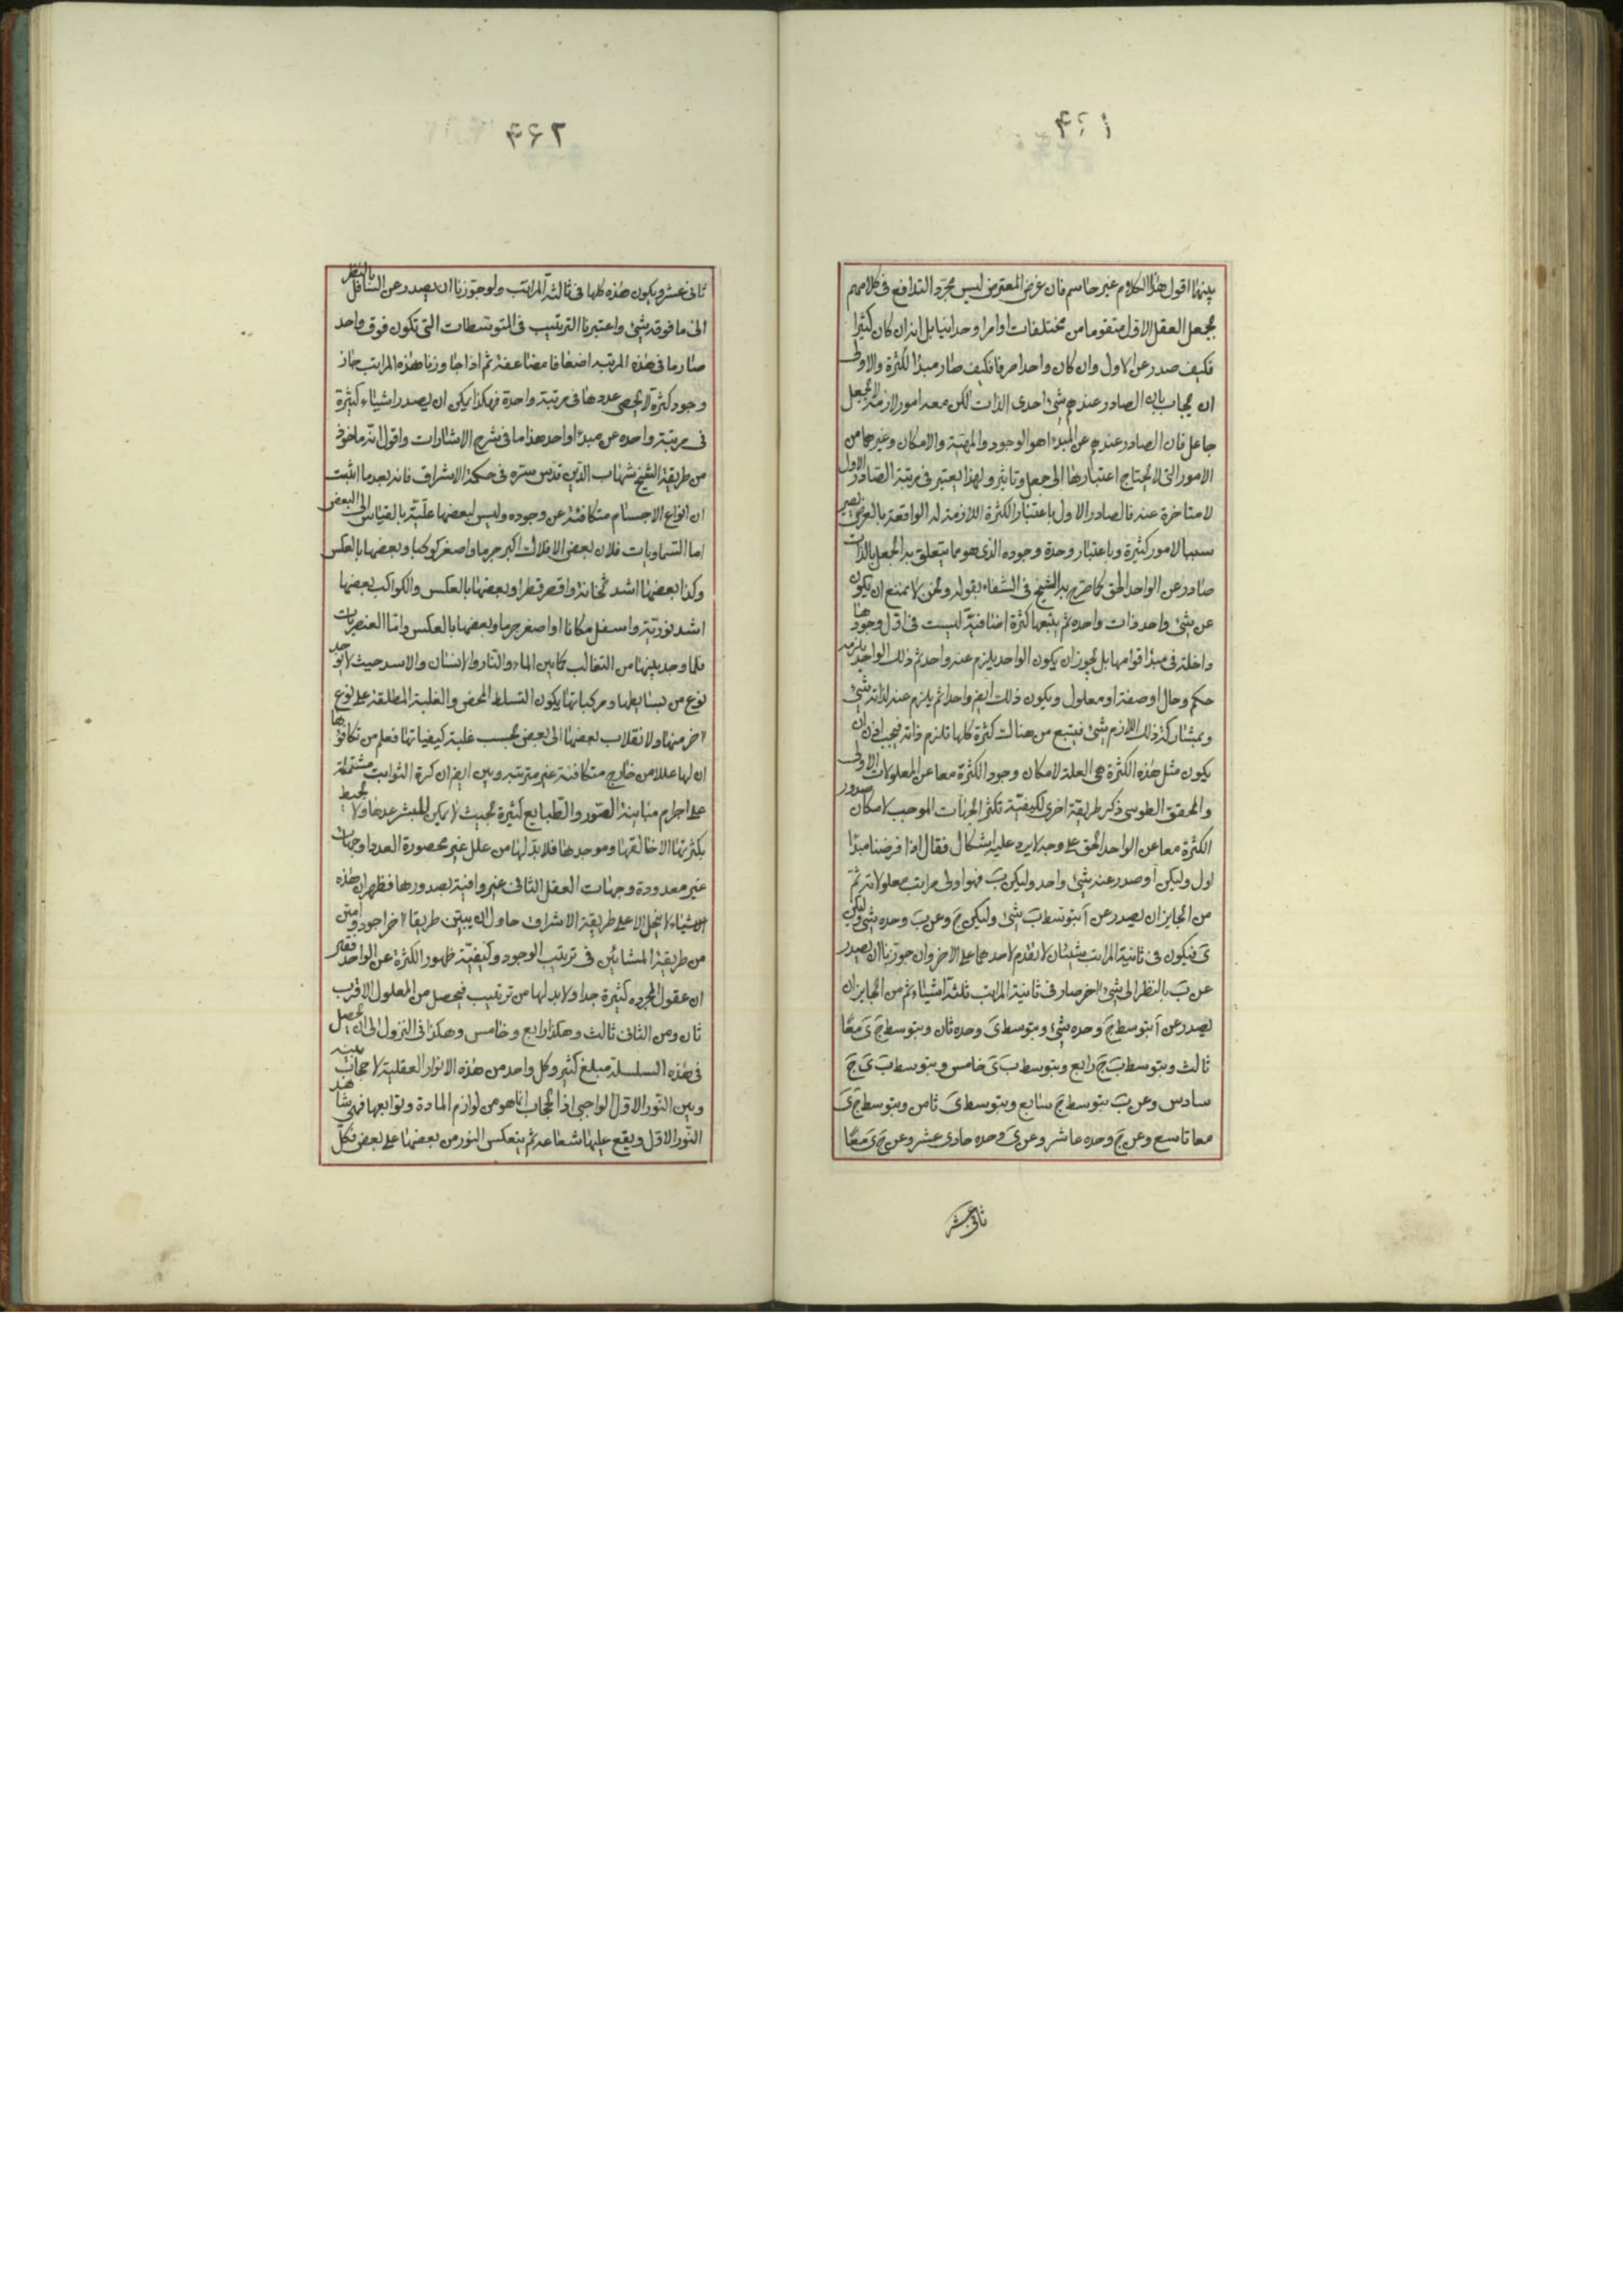 ۴۶۱
بينهما اقول هذا الكلام غير حاسم فان غرض المعترض ليس مجرد التدافع فى كلامهم
بجعل العقل الاول متقوما من مختلفات او امرا وحدانيا بل انه ان كان كثيرا
فكيف صدر عن الاول وان كان واحدا صرفا فكيف صار مبدأ للكثرة والاولى
ان يجاب بان الصادر عندهم شئ احدى الذات لكن معه امور لازمة لا بجعل
جاعل فان الصادر عندهم عن المبدء اهو الوجود والمهية والامكان وغيرها من
الامور التى لا يحتاج اعتبارها الى جعل وتاثير ولهذا يعتبر فى مرتبة الصادر الاول
لا متاخرة عنه فالصادر الاول باعتبار الكثرة اللازمة له الواقعة بالعرض يصير
سببا لامور كثيرة وباعتبار وحدة وجوده الذى هو مما يتعلق به الجعل بالذات
صادر عن الواحد الحق كما صرح به الشيخ فى الشفاء بقوله ونحن لا نمنع ان يكون
عن شئ واحد ذات واحدة ثم يتبعها كثرة اضافية ليست فى اول وجودها
داخلة فى مبدأ قوامها بل يجوز ان يكون الواحد يلزم عنه واحد ثم ذلك الواحد يلزمه
حكم وحال او صفة او معلول ويكون ذلك ايضا واحدا ثم يلزم عنه لذاته شئ
وبمشاركة ذلك اللازم شئ فيتبع من هناك كثرة كلها تلزم ذاته فيجب اذن ان
يكون مثل هذه الكثرة هى العلة لامكان وجود الكثرة معا عن المعلولات الاولى
والمحقق الطوسى ذكر طريقة اخرى لكيفية تكثر الجهات الموجب لامكان صدور
الكثرة معا عن الواحد الحق على وجه لا يرد عليه اشكال فقال اذا فرضنا مبدأ
اول وليكن آ وصدر عنه شئ واحد وليكن ب فهو اولى مراتب معلولاته ثم
من الجايز ان يصدر عن آ بتوسط ب شئ وليكن ج وعن ب وحده شئ وليكن
ى فيكون فى ثانية المراتب شيئان لا تقدم لاحدهما على الاخر وان جوزنا ان يصدر
عن ب بالنظر الى شئ اخر صار فى ثانية المراتب ثلثة اشياء ثم من الجايز ان
يصدر عن آ بتوسط ج وحده شئ وبتوسط ى وحده ثان وبتوسط ج ى معا
ثالث وبتوسط ب ج رابع وبتوسط ب ى خامس وبتوسط ب ى ج
سادس وعن ب بتوسط ج سابع وبتوسط ى ثامن وبتوسط ج ى
معا تاسع وعن ج وحده عاشر وعن ى وحده حادى عشر وعن ج ى معا
ثانى عشر
۴۶۲
ثانى عشر ويكون هذه كلها فى ثالثة المراتب ولو جوزنا ان يصدر عن السافل بالنظر
الى ما فوقه شئ واعتبرنا الترتيب فى المتوسطات التى تكون فوق واحد
صار ما فى هذه المرتبه اضعافا مضاعفة ثم اذا جاوزنا هذه المراتب جاز
وجود كثرة لا يحصى عددها فى مرتبة واحدة فهكذا يمكن ان يصدر اشياء كثيرة
فى مرتبة واحده عن مبدأ واحد هذا ما فى شرح الاشارات واقول انه ماخوذ
من طريقة الشيخ شهاب الدين قدس سره فى حكمة الاشراق فانه بعد ما اثبت
ان انواع الاجسام متكافئة عن وجوده وليس لبعضها علية بالقياس الى البعض
اما السماويات فلان بعض الافلاك اكبر جرما واصغر كوكبا وبعضها بالعكس
وكذا بعضها اشد ثخانة واقصر قطرا وبعضها بالعكس والكواكب بعضها
اشد نورية واسفل مكانا او اصغر جرما وبعضها بالعكس واما العنصريات
فلما وجد بينها من التغالب كما بين الماء والنار والانسان والاسد حيث لا يوجد
نوع من بسايطها ومركباتها يكون التسلط المحض والغلبة المطلقة على نوع
اخر منها ولانقلاب بعضها الى بعض بحسب غلبة كيفياتها فعلم من تكافؤها
ان لها عللا من خارج متكافئة غير مترتبه وبين ايضا ان كرة الثوابت مشتملة
على اجرام متباينة الصور والطبايع كثيرة بحيث لا يمكن للبشر عدها ولا يحيط
بكثرتها الا خالقها وموجدها فلابد لها من علل غير محصورة العدد او جهات
غير معدودة وجهات العقل الثانى غير وافية بصدورها فظهر ان هذه
الاشياء لا ينحل الا على طريقة الاشراق حاول ان يبين طريقا اخر اجود وامتن
من طريقة المشائين فى ترتيب الوجود وكيفية ظهور الكثرة عن الواحد فقال
ان عقول المجرده كثيرة جدا ولابد لها من ترتيب فيحصل من المعلول الاقرب
ثان ومن الثانى ثالث وهكذا رابع وخامس وهكذا فى النزول الى ان يحصل
فى هذه السلسلة مبلغ كثير وكل واحد من هذه الانوار العقلية لا حجاب بينه
وبين النور الاول الواجبى اذ الحجاب انما هو من لوازم المادة وتوابعها فهى شاهد
النور الاول ويقع عليها شعاعه ثم ينعكس النور من بعضها على بعض فكل